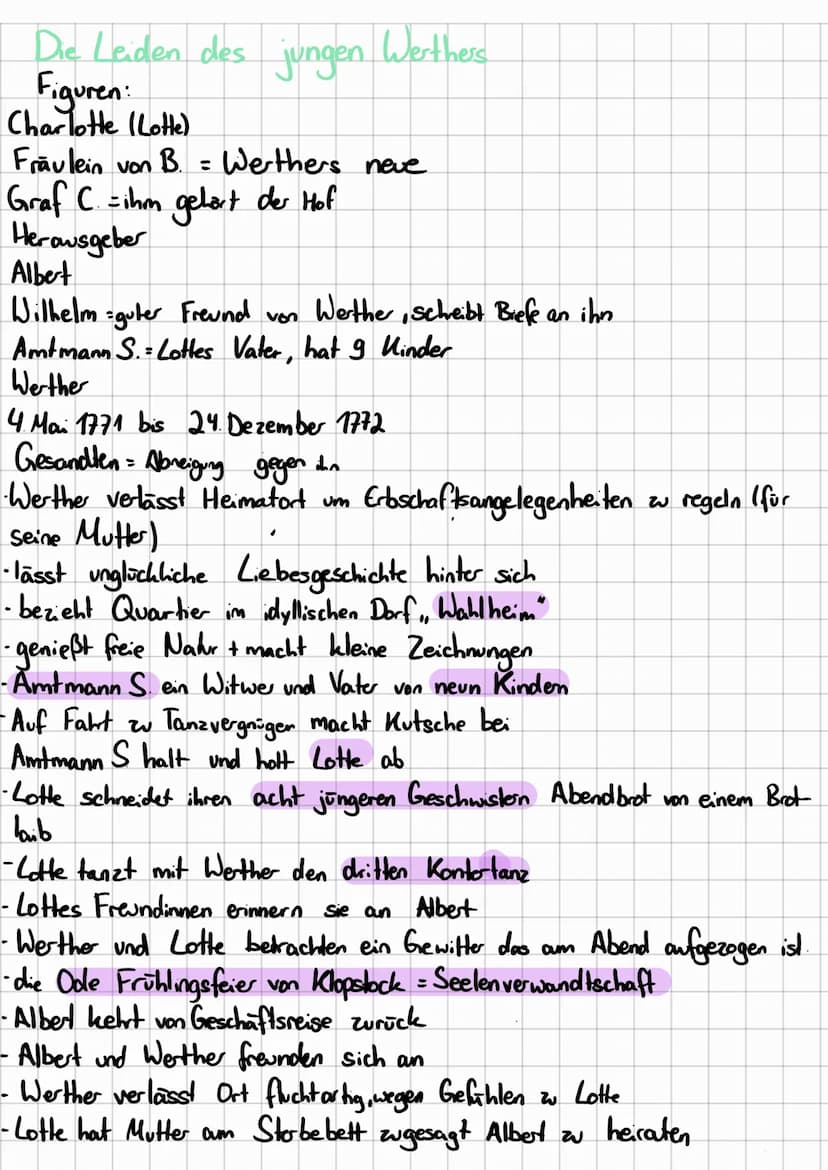 Die Leiden des jungen Werthers
Figuren:
Charlotte (Lotte)
Fräulein von B. = Werthers neue
Graf C. = ihm gehört der Hof
Herausgeber
Albert
Wilhelm = guter Freund von Werther, scheibt Biefe an ihn
Amtmann S. = Lottes Vater, hat 9 Kinder
Werther
4. Mai 1771 bis 24. Dezember 1772
Gesandten = Abneigung gegen ihn
· Werther verlässt Heimatort um Erbschaftsangelegenheiten zu regeln (für
seine Mutter)
· lässt unglückliche Liebesgeschichte hinter sich
· bezieht Quartier im idyllischen Dorf „Wahlheim“
- genießt freie Natur + macht kleine Zeichnungen
- Amtmann S. ein Witwer und Vater von neun Kindern
- Auf Fahrt zu Tanzvergnügen macht Kutsche bei
Amtmann S halt und holt Lotte ab
· Lotte schneidet ihren acht jüngeren Geschwistern Abendbrot von einem Brot-
laib
- Lotte tanzt mit Werther den dritten Kontertanz
- Lottes Freundinnen erinnern sie an Albert
· Werther und Lotte betrachten ein Gewitter das am Abend aufgezogen ist.
· die Ode Frühlingsfeier von Klopstock = Seelenverwandtschaft
· Albert kehrt von Geschäftsreise zurück
- Albert und Werther freunden sich an
- Werther verlässt Ort fluchtartig, wegen Gefühlen zu Lotte
- Lotte hat Mutter am Sterbebett zugesagt Albert zu heiraten